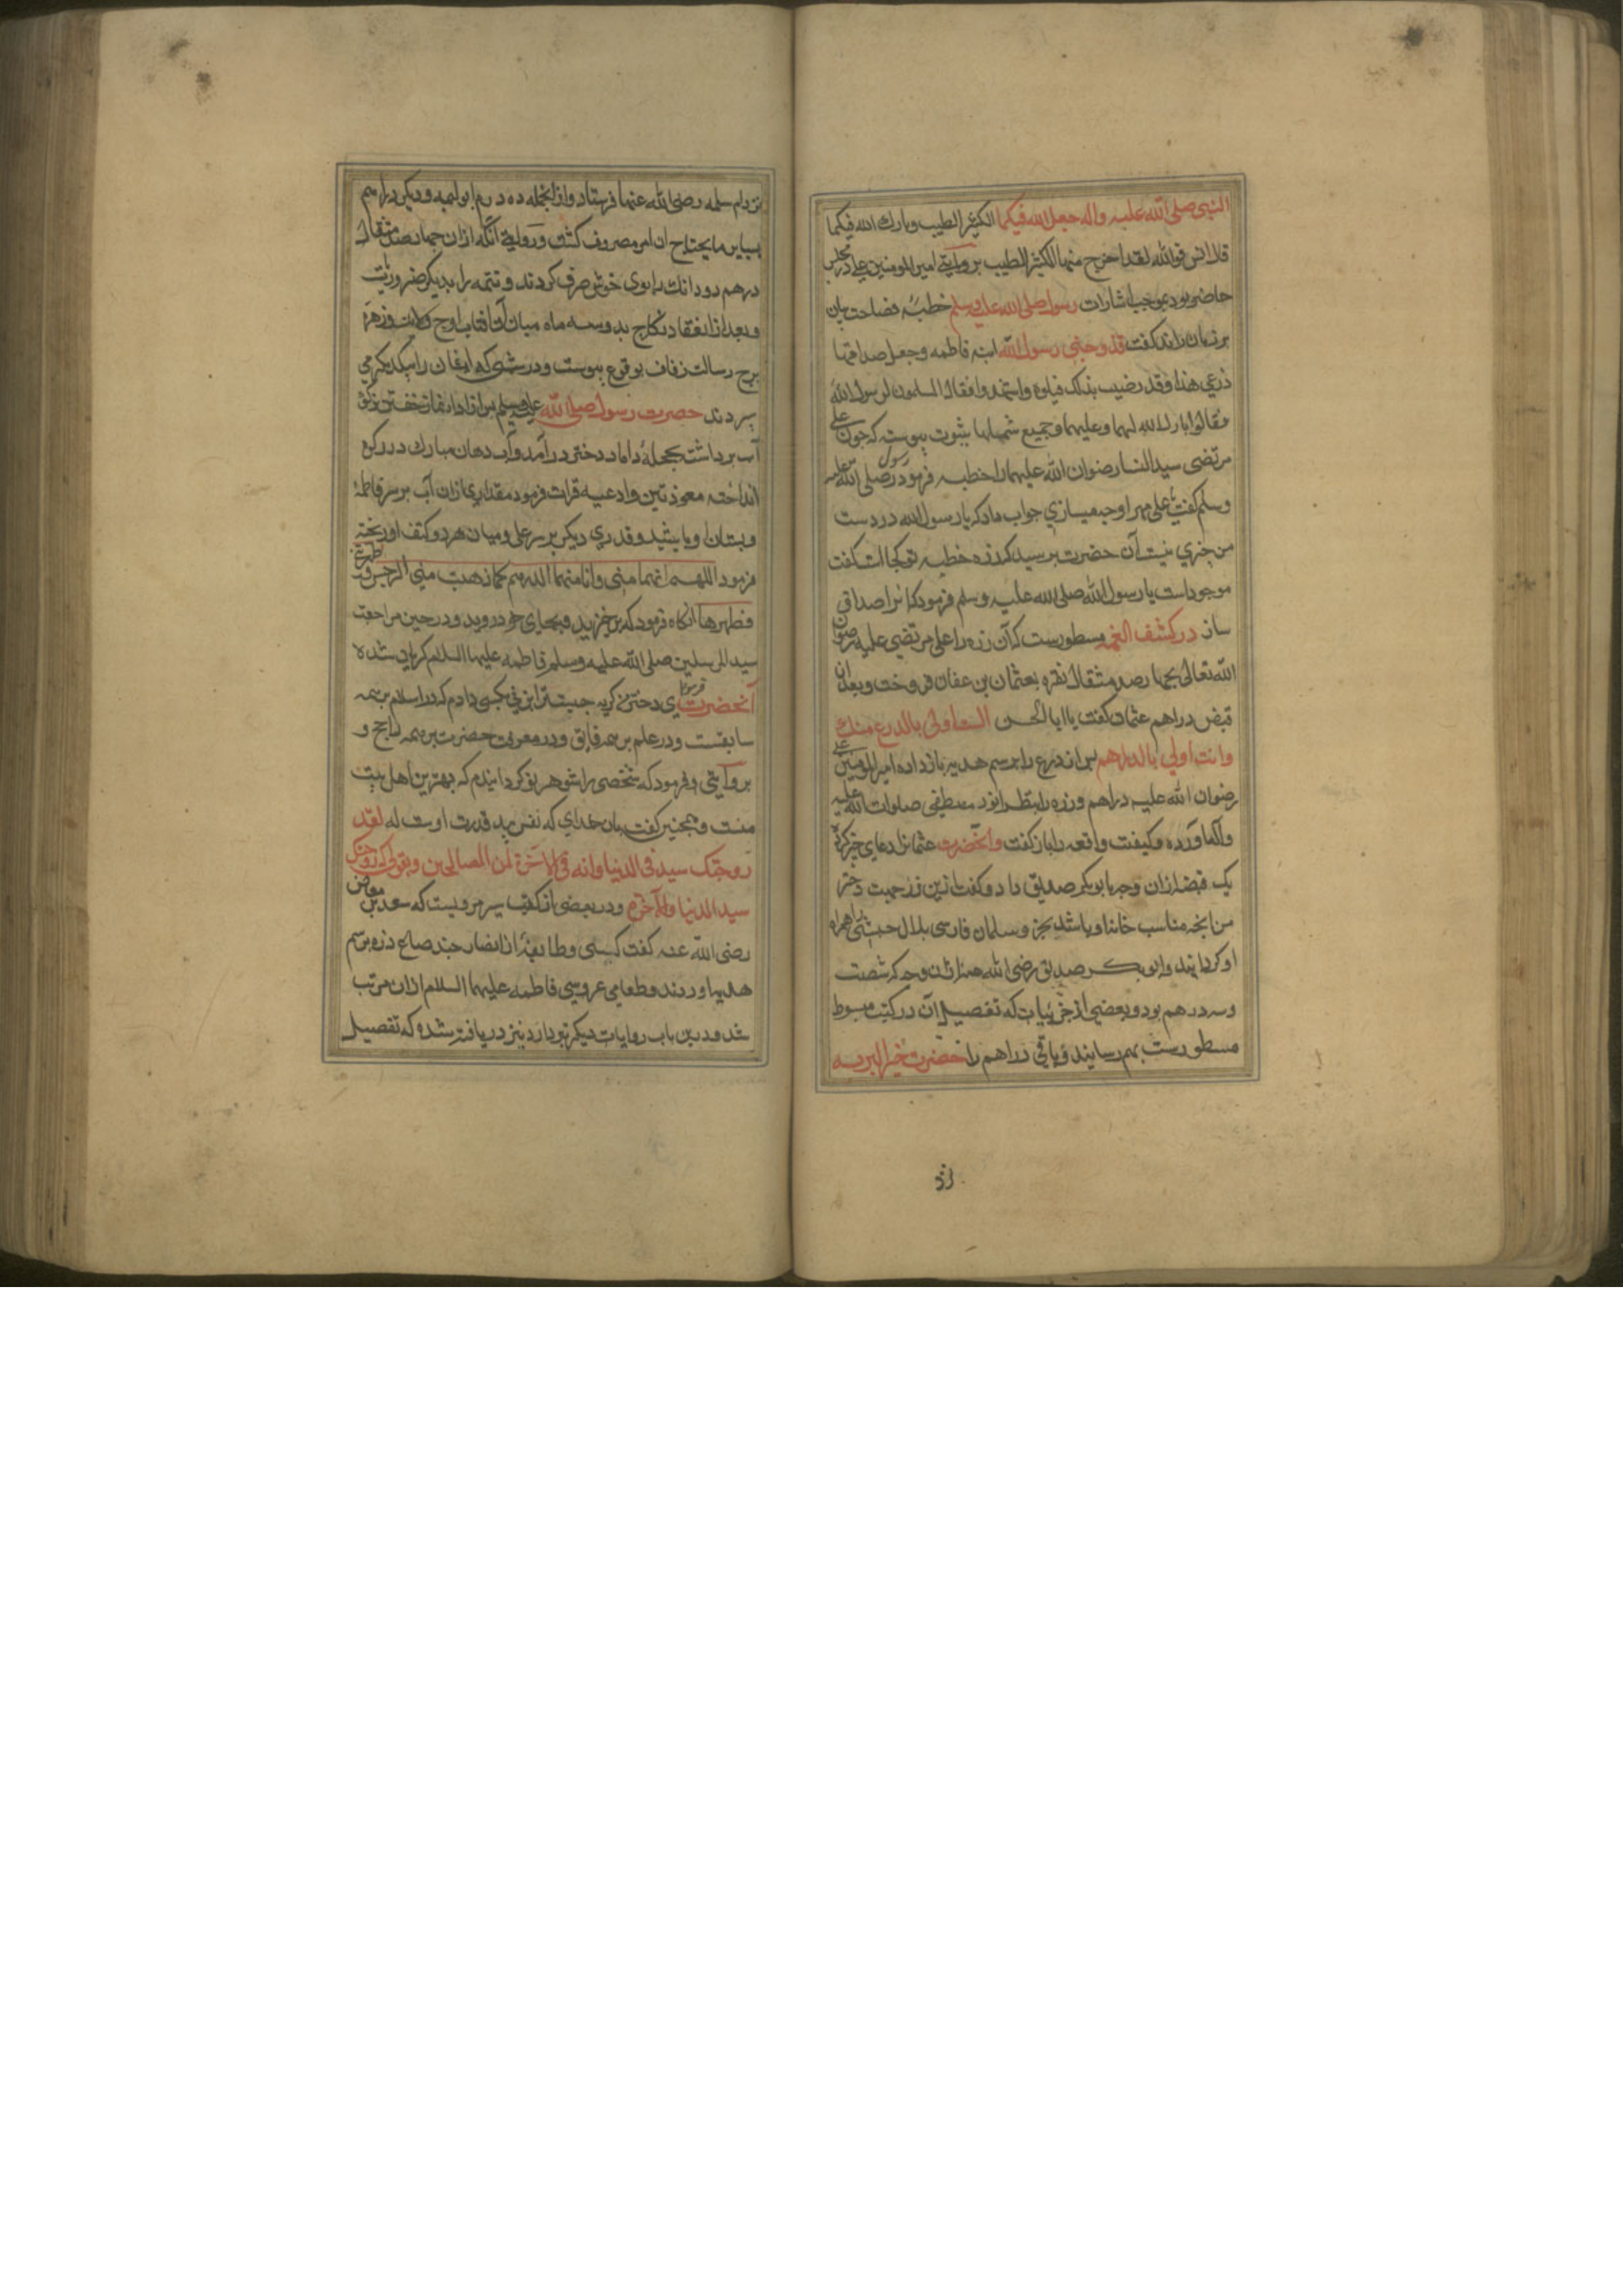 النبی صلی الله علیه واله جعل الله فیکما الکثیر الطیب وبارك الله فیکما
قال انس فوالله لقد اخرج منهما الکثیر الطیب بروایتی امیر المومنین علی در مجلس
حاضر بود بموجب اشارات رسول صلی الله علیه وسلم خطبهٔ فصاحت بیان
بر زبان راند گفت قد زوجنی رسول الله ابنه فاطمه وجعل صداقها
درعی هذا وقد رضیت بذلک واشهدوا فقال المسلمون لرسول الله
فقالوا بارك الله لهما وعلیهما وجمیع شملهما بثبوت پیوسته که چون علی
مرتضی سیدالنسا رضوان الله علیهما را خطبه فرمود رسول صلی الله علیه
وسلم گفت یا علی مهر او چه میسازی جواب داد که یا رسول الله در دست
من چیزی نیست آن حضرت پرسید که زره خطمیه تو کجا است گفت
موجود است یا رسول الله صلی الله علیه وسلم فرمود که انرا صداق
ساز در کشف الغمه مسطورست که آن زره را علی مرتضی علیه رضوان
الله تعالی بچهار صد مثقال نقره بعثمان بن عفان فروخت وبعد از
قبض دراهم عثمان گفت یا ابا الحسن الست اولی بالدرع منك
وانت اولی بالدراهم پس اندرع را برسم هدیه باز داد امیر المومنین علی
رضوان الله علیه دراهم وزره را بنظر انور مصطفی صلوات الله علیه
واله اورده وکیفیت واقعه را باز گفت وانحضرت عثمانرا دعای خیر کرده
یک قبضه ازان وجه بابوبکر صدیق داد وگفت ازین زر جهت دختر
من انچه مناسب خانه او باشد بخر وسلمان فارسی بلال حبشی را همراه
او گردانید وابوبکر صدیق رضی الله عنه ازان وجه که شصت
وسه درهم بود وبعضی از جزئیات که تفصیل آن در کتب مبسوط
مسطورست بهم رسانید وباقی دراهم را حضرت خیر البریه
نزد ام سلمه رضی الله عنها فرستاد وازانجمله ده درم ابو لیمه ودیگر دراهم
بسایر مایحتاج ان امر مصروف گشت وروایتی آنکه ازان چهار صد مثقال
درهم دو دانك را بوی خوش صرف کردند وتتمه را بدیگر ضروریات
وبعد از انعقاد نکاح بدو سه ماه میان آن آفتاب اوج ولایت وزهره
برج رسالت زفاف بوقوع پیوست ودر شبی که ایشان را بیکدیگر می
سپردند حضرت رسول صلی الله علیه وسلم پس از ادا نماز خفتن رکوه
آب برداشته بحجلهٔ داماد دختر درآمد وآب دهان مبارك در رکوه
انداخته معوذتین وادعیه قرات فرمود مقداری ازان آب بر سر فاطمهٔ
وپستان او پاشید وقدری دیگر بر سر علی ومیان هر دو کتف او ریخته
فرمود اللهم انهما منی وانا منهما اللهم کما اذهبت منی الرجس وطهرتنی
فطهرهما انگاه فرمود که برخیزید وبجای خود روید ودر حین مراجعت
سید المرسلین صلی الله علیه وسلم فاطمه علیها السلام گریان شده
آنحضرت فرمود ای دختر من گریه جیست ترا بزنی بکسی دادم که در اسلام بر همه
سابقست ودر علم بر همه فایق ودر معرفت حضرت بر همه راجح و
بروایتی فرمود که شخصی را شوهر تو گردانیدم که بهترین اهل بیت
منست وهمچنین گفت بان خدای که نفس بید قدرت اوست له لقد
زوجتک سید فی الدنیا وانه فی الاخرة لمن الصالحین وبقولی که زوجتک
سید الدنیا والآخرة ودر بعضی از کتب سیر مرویست که سعد بن معاذ
رضی الله عنه گفت کبشی وطایفهٔ از انصار چند صاع ذره برسم
هدیه آوردند وطعامی عروسی فاطمه علیها السلام ازان مرتب
شد ودرین باب روایات دیگر نیز دریافته شده که تفصیل